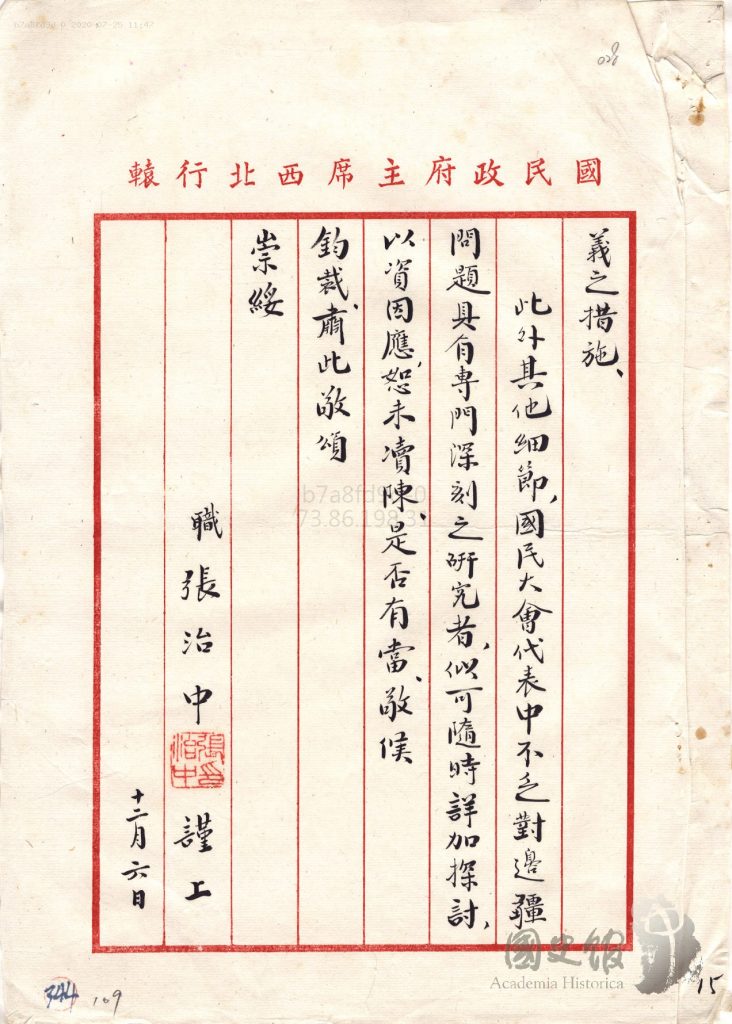 b7a8fd9d 0 2020-07-25 11:42
國民政府主席西北行轅
義之措施、
此外其他細節,國民大會代表中不乏對邊疆
問題具有專門深刻之研究者,似可隨時詳加探討,
以資因應,恕未瀆陳、是否有當、敬候
鈞裁、肅此敬頌
崇綏
職 張治中 謹上
張治中印
十二月六日
國史館
Academia Historica
344
109
15